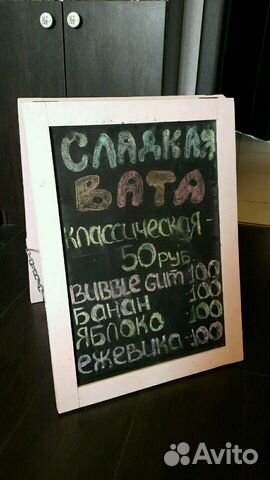 СЛАДКАЯ
ВАТА
КЛАССИЧЕСКАЯ -
50 РУБ.
BUBBLE GUM-100
БАНАН 100
ЯБЛОКО - 100
ЕЖЕВИКА-100
Avito